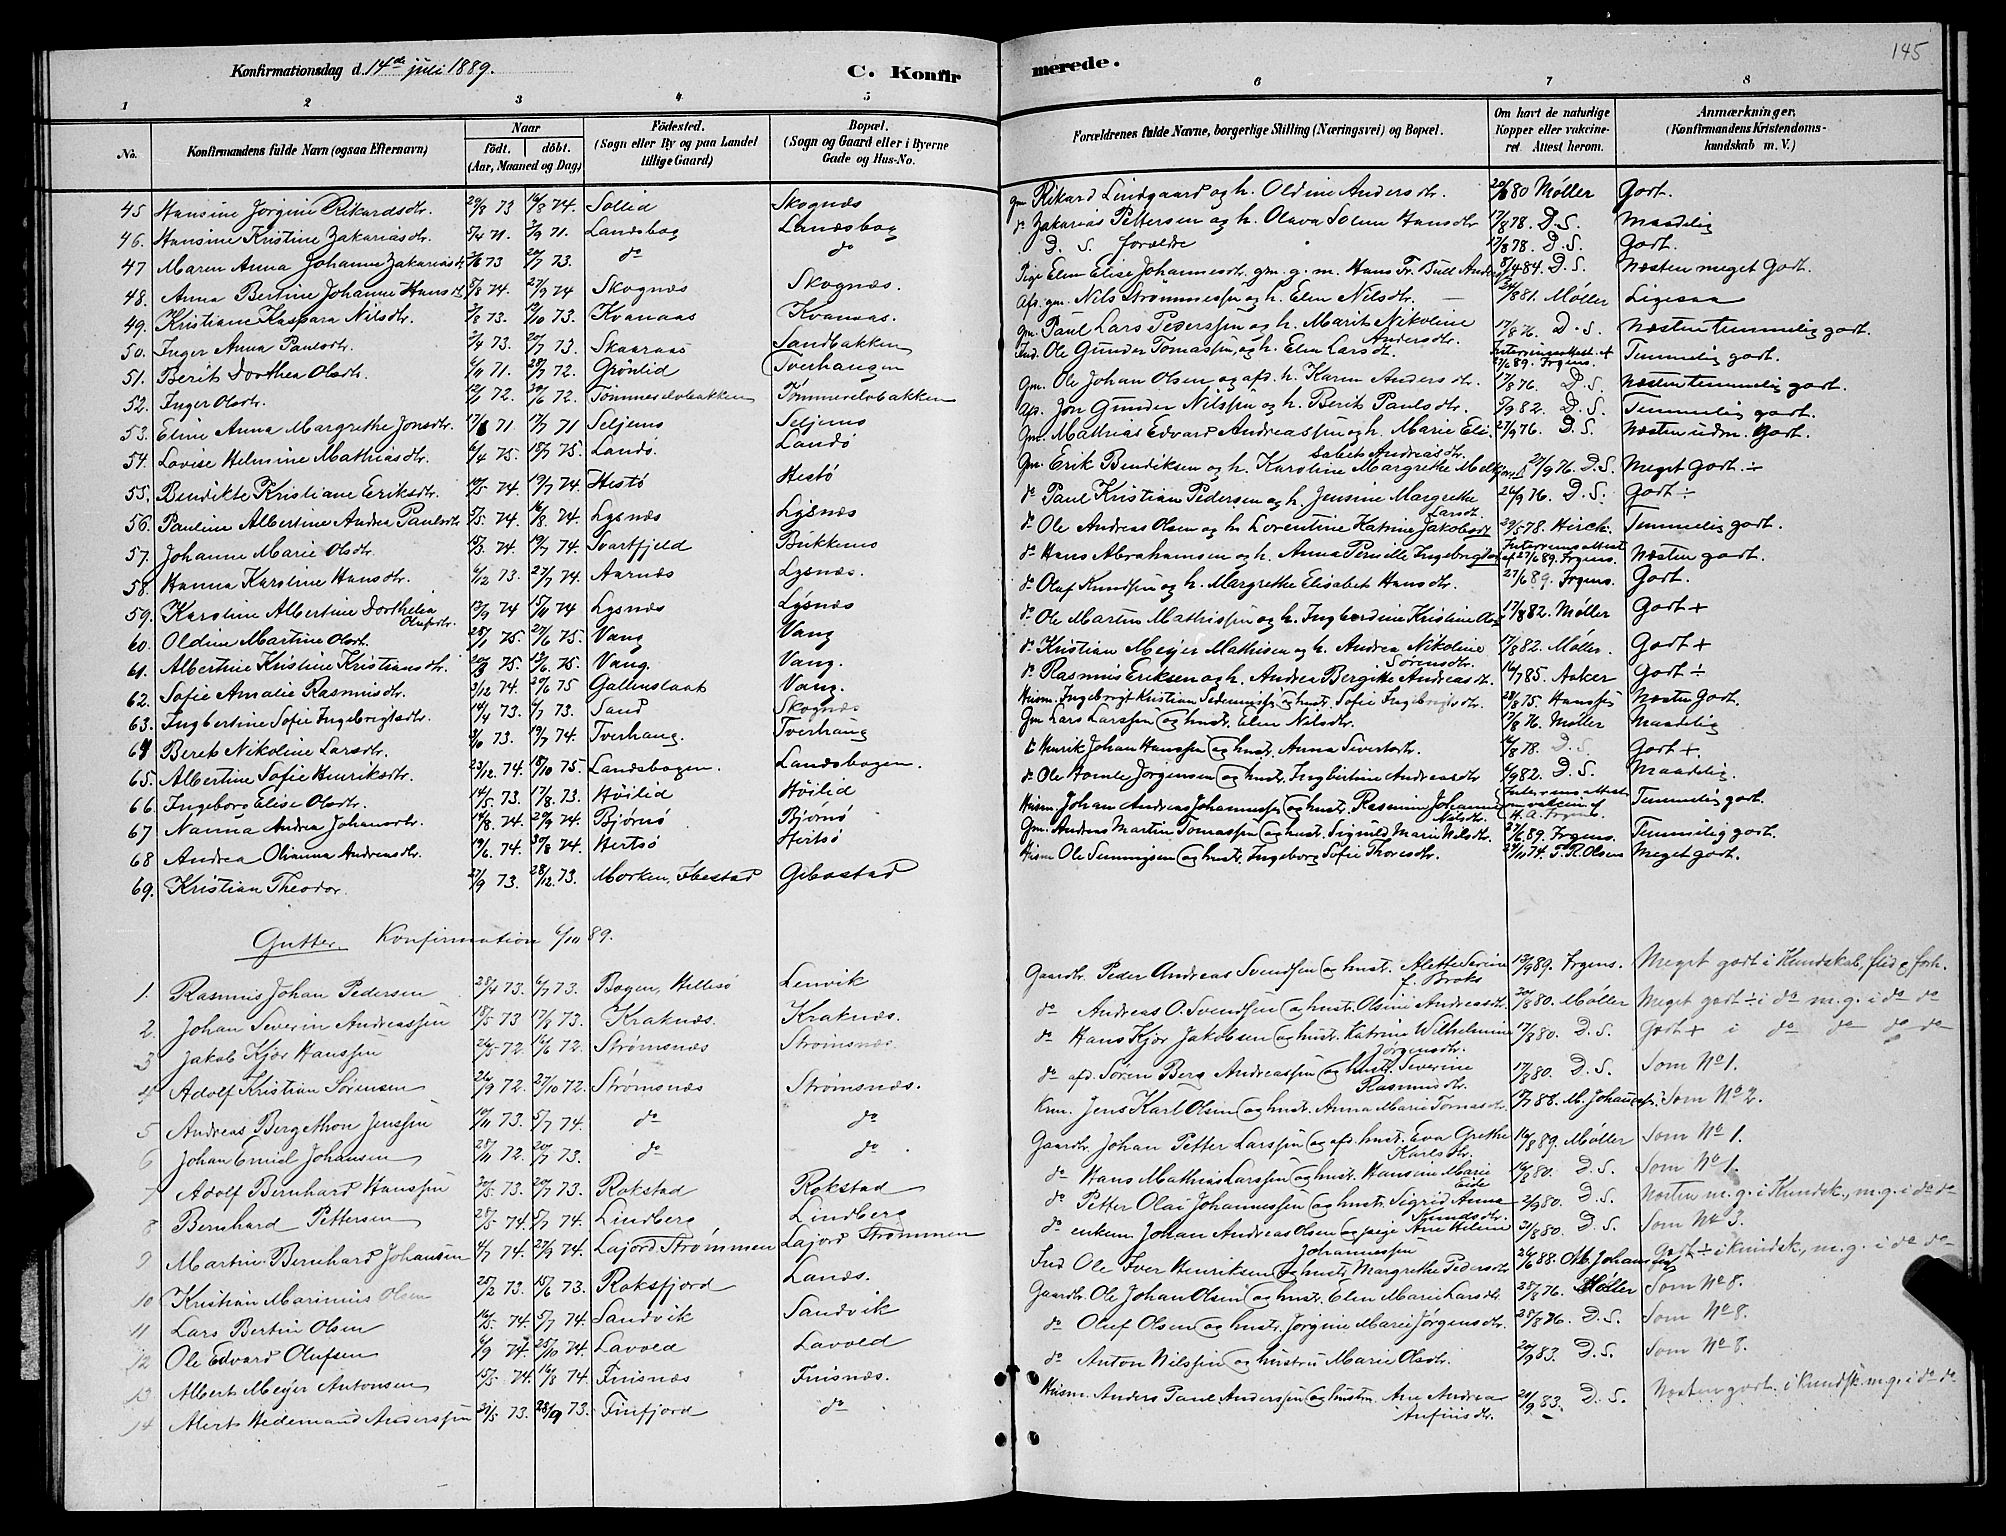 145
Konfirmationsdag d. 14de juli 1889.
C. Konfir
merede.
1 2 3 4 5 6 7 8
No.
Konfirmandens fulde Navn (ogsaa Efternavn)
Naar
födt. döbt.
(Aar, Maaned og Dag)
Födested.
(Sogn eller By og paa Landet tillige Gaard)
Bopæl.
(Sogn og Gaard eller i Byerne Gade og Hus-No.
Forældrenes fulde Navne, borgerlige Stilling (Næringsvei) og Bopæl.
Om havt de naturlige Kopper eller vakcineret. Attest herom.
Anmærkninger.
(Konfirmandens Kristendomskundskab m. V.)
45 Hansine Jörgine Rikardsdr. 29/8 73 16/8 74. Sollid Skognæs gm Rikard Lindgaard og h. Oldine Andersdr. 80 Møller Godt.
46. Hansine Kristine Zakariasdr. 5/4 71. 3/9 71. Landsbog Landsbog do Zakarias Pettersen og h. Olava Soline Hansdtr 17/8 78. D. S. Maadelig
47 Maren Anna Johanne Zakariasd 73 20/7 73. do do D. S. forældre 17/8 78. D. S. Godt.
48. Anna Bertine Johanne Hansdr 5/8 74. 27/9 74 Skognæs Skognæs. Pige Elen Elise Johannesdr. gm. g. m. Hans Fr. Bull Anders 84. D. S. Næsten meget Godt.
49. Kristiane Kaspara Nilsdtr. 3/8 73. 12/10 73. Kvanaas Kvanaas. Afs. gm. Nils Strømmesen og h. Elen Nilsdtr. — 24/8 81. Møller Ligesaa
50. Inger Anna Paulsdtr. 2/4 73. 20/7 73. Skaaraas Sandbakken gm. Paul Lars Pedersen og h. Marit Nikoline Andersdtr. 17/8 76. D. S. Næsten temmelig godt.
51. Berit Dorthea Olsdtr. 6/11 71. 28/7 72. Grönlid Tverhaugen Ind. Ole Gunder Tomassen, og h. Elen Larsdt. 27/6 89. Irgens. Temmelig godt.
52. Inger Olsdtr. 12/1 72. 30/6 72. Tömmerelvbakken Tømmerelvbakken Gm. Ole Johan Olsen og afd. h. Karen Andersdtr. 17/8 76. D. S. Næsten temmelig godt.
53. Eline Anna Margrethe Jonsdtr. 71 17/9 71 Seljemo Seljemo Afs. Jon Gunder Nilssen og h. Berit Paulsdtr. 82. D. S. Temmelig godt.
54. Lovise Helmine Mathiasdtr. 6/4 75. 18/7 75. Landö. Landö Gm. Mathias Edvard Andreassen og h. Marie Elisabet Andreasdtr. 27/9 76. D. S. Næsten udm. Godt.
55. Bendikte Kristiane Eriksdtr. 10/5 74. 19/7 74. Hestö Hestö Gm. Erik Bendiksen og h. Karoline Margrethe 27/9 76. D. S. Meget Godt ÷
56. Pauline Albertine Andrea Paulsdtr 5/5 74. 16/8 74. Lysnæs Lysnæs do Paul Kristian Pedersen og h. Jensine Margrethe Larsdt. 26/9 76. D. S. Godt ÷
57. Johanne Marie Olsdtr. 15/3 74. 19/7 74. Svartfjeld Bukkemo do Ole Andreas Olsen og h. Lorentine Katrine Jakobsdt 29/5 78. Kirch. Temmelig godt.
58. Hanna Karoline Hansdtr. 6/12 73. 27/7 74. Aarnæs Lysnæs. do Hans Abrahamsen og h. Anna Pernille Ingebrigtsd 27/6 89. Irgens. Næsten godt.
59. Karoline Albertine Dorthelia Olufsdtr. 13/9 74 15/11 74 Lysnæs Lysnæs do Olaf Knudsen og h. Margrethe Elisabet Hansdtr. 27/6 89. Irgens. Godt.
60. Oldine Martine Olsdt. 28/1 75. 27/6 75. Vang Vang do Ole Martin Mathissen og h. Ingbordine Kristine Ols 17/8 82. Møller Godt +
61. Albertine Kristine Kristiansdtr. 75. 13/6 75. Vang. Vang. do Kristian Meyer Mathisen og h. Andrea Nikoline Sørensdtr. 17/8 82. Møller. Godt +
62. Sofie Amalie Rasmusdtr. 3/12 74. 20/6 75 Gallenslaat Vang. do Rasmus Eriksen og h. Andrea Bergitte Andreasdt. 16/7 85. Aaker Godt ÷
63. Ingbertine Sofie Ingebrigtsdtr. 14/4 73. 6/7 73. Sand Skognæs Husm. Ingebrigt Kristian og hust. Sofie Ingebrigtsdtr. 28/8 75. Hanssen Næsten Godt.
64 Berit Nikoline Larsdtr. 3/10 73. 19/7 74. Tverhaug. Tverhaug Gm Lars Larssen og hust. Elen Nilsdtr. 17/8 76. Møller Maadelig
65. Albertine Sofie Henriksdtr. 23/12 74. 18/10 75. Landsbogen. Landsbogen. Henrik Johan Hanssen og hust. Anna Sivertsdr. 16/8 78. D. S. Godt +
66. Ingeborg Elise Olsdtr. 14/5 73. 17/8 73. Höilid Höilid do Ole Homle Jørgensen og hust. Ingbertine Andreasdtr 82. D. S. Maadelig.
67 Nanna Andrea Johansdtr. 14/8 74. 20/9 74. Bjørnø Bjørnø Husm. Johan Andreas Johannessen og hust. Rasmine Johanne Nilsdtr. Temmelig godt.
68 Andrea Olianna Andreasdtr. 19/6 74. 30/8 74. Hertsö Hertsö Gm. Anders Martin Tomassen og hust. Sigrild Marie Nilsdtr. 27/6 89. Irgens. Temmelig godt.
69. Kristian Theodor. 27/9 73. 28/12 73. Morken, Ibestad Gibostad Husm Ole Semmingsen og hust. Ingeborg Sofie Thoresdtr. 74. P. R. Olsen Meget godt.
Gutter. Konfirmation 6/10 89.
1. Rasmus Johan Pedersen 28/4 73. 6/7 73. Bogen, Hillesö Lenvik Gaardbr. Peder Andreas Svendsen og hust. Alette Serine f. Broks 13/9 89. Irgens. Meget godt i Kundskab, flid & forh.
2 Johan Severin Andreassen 18/5 73 17/8 73. Kraknæs. Kraknæs. do Andreas O. Svendsen og hustr. Olsine Andreasdtr. 20/8 80. Møller Meget godt ÷ i do m. g. i do do
3 Jakob Kjær Hanssen 26/5 72. 16/6 72. Strømsnæs Strømsnæs. do Hans Kjær Jakobsen og hust. Katrine Wilhelmine Jörgensdtr. 17/9 80. D. S. Godt + i do do do do
4 Adolf Kristian Sörensen 26/9 72. 27/10 72. Strømsnæs Strømsnæs. do afd. Sören Berg Andreassen og hust. Severine Rasmusdtr. 17/8 80. D. S. Som No 1.
5 Andreas Bergethon Jenssen 10/11 73. 5/7 74. do do Jens Karl Olsen og hust. Anna Marie Tomasdtr 88. M. Johansen Som No 2.
6 Johan Emil Johansen 28/11 72. 20/7 73. do do Gaardbr. Johan Petter Larssen og afd. hust. Eva Grethe Karlsdtr. 16/8 89. Møller Som No 1.
7 Adolf Bernhard Hanssen 30/5 73. 20/7 73. Rokstad Rokstad do Hans Mathias Larssen og hust. Hansine Marie Eide 16/8 80. D. S. Som No 1.
8 Bernhard Pettersen 28/5 74. 5/7 74. Lindberg Lindberg do Petter Olai Johannessen og hust. Sigrid Anna Knudsdtr. 2/9 80. D. S. Næsten m. g. i Kundsk., m. g. i do do
9 Martin Bernhard Johansen 4/7 74. 27/9 74. Lajord, Strømmen Lajord Strømmen do enkem. Johan Andreas Olsen og pige Ane Heline Johannessen 31/8 80. D. S. Som No 3.
10 Kristian Marinius Olsen 25/2 73. 15/6 73. Roksfjord Lanes. Ind Ole Iver Henriksen og hust. Margrethe Pedersdtr 26/6 88. M. Johanssen Godt ÷ i kundsk., m. g. i do do
11 Lars Bertin Olsen 16/5 74. 5/7 74. Sandvik Sandvik Gaardbr. Ole Johan Olsen og hust. Elen Marie Larsdtr 28/8 76. Møller Som No 8.
12 Ole Edvard Olufsen 6/9 74. 25/10 74. Lavold Lavold do Oluf Olsen og hust. Jørgine Marie Jørgensdtr. 28/8 76. D. S. Som No 8.
13 Albert Meyer Antonsen 15/5 74. 16/8 74. Finsnæs Finsnæs. do Anton Nilssen og hustru Marie Olsdtr. 20/9 83. D. S. Som No 8.
14 Alert Hedemand Anderssen 21/5 73. 28/9 73. Finfjord do Husm. Anders Paul Anderssen og hustru Ane Andrea Anfinsdtr. 20/9 83. D. S. Næsten godt. i Kundsk. m. g. i do do